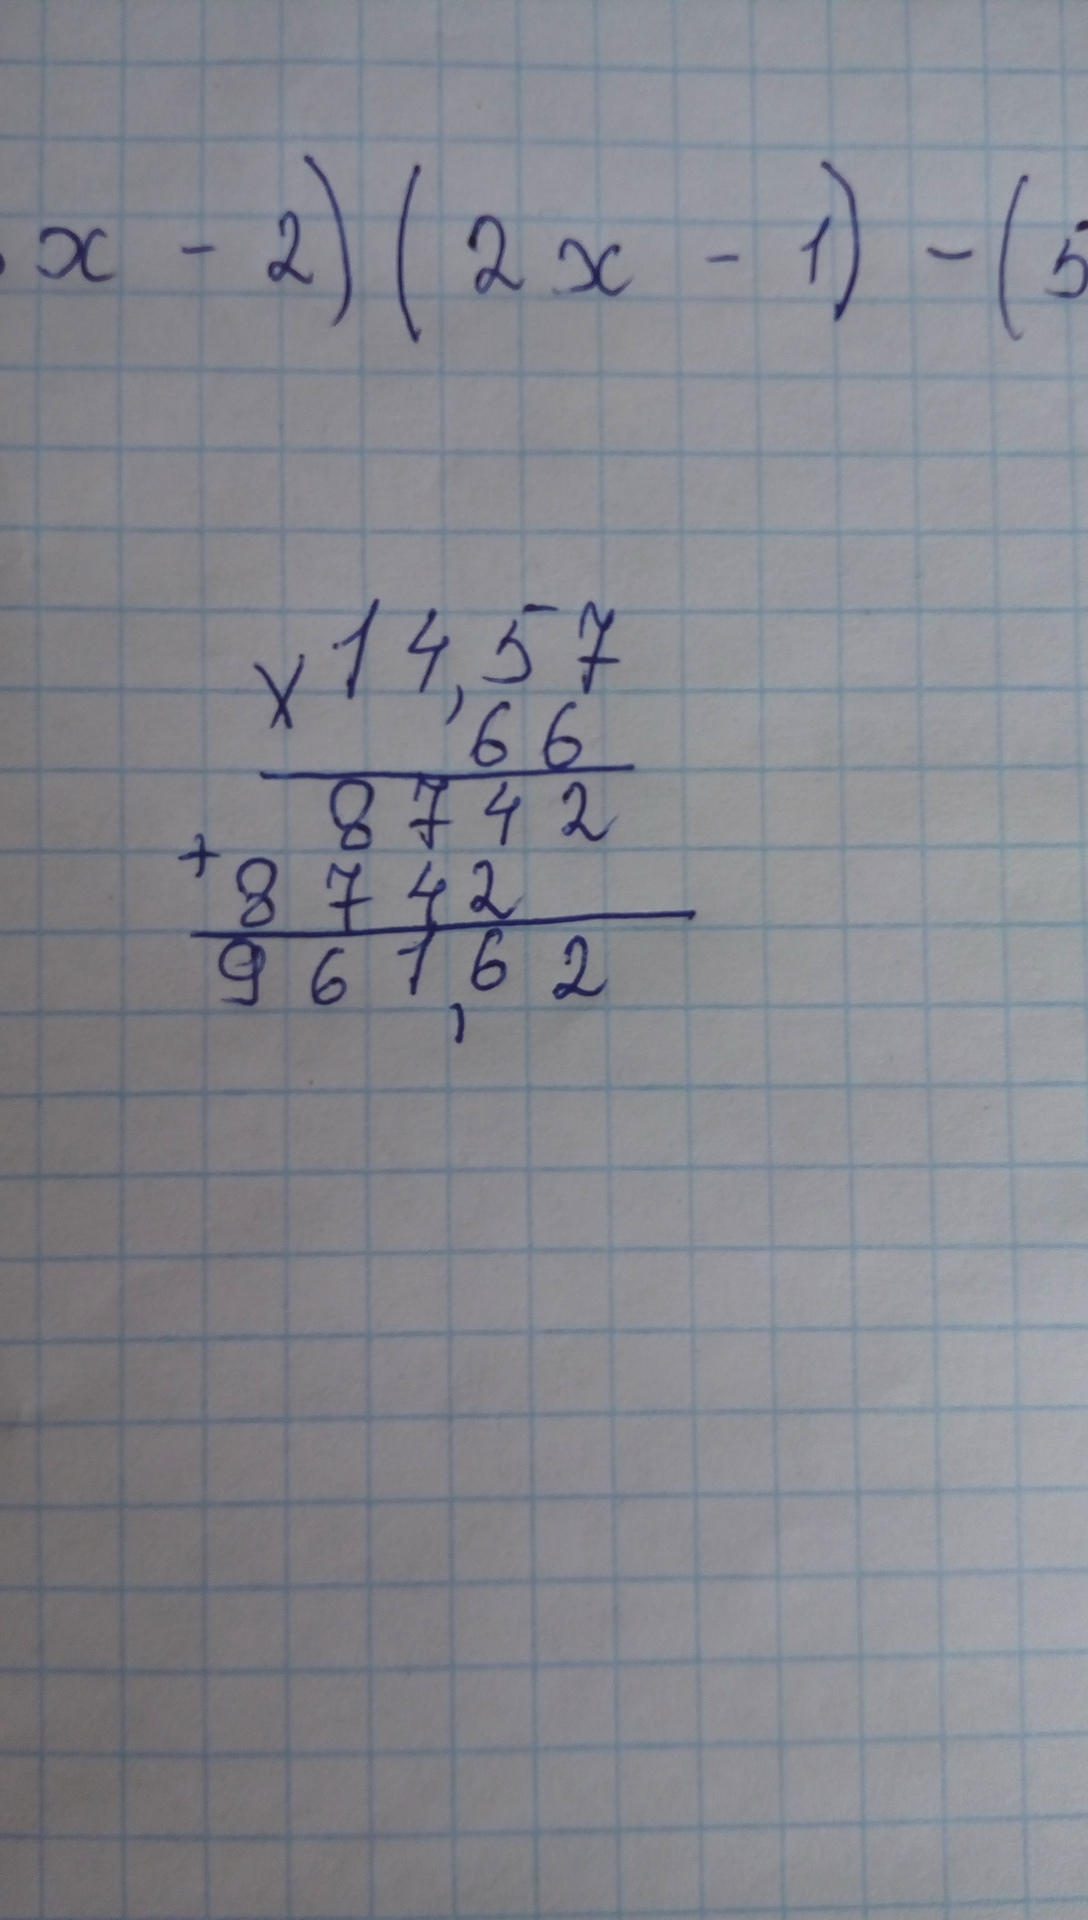 x - 2)(2x - 1) - (5
x 14,57
66
8742
+ 8742
961,62